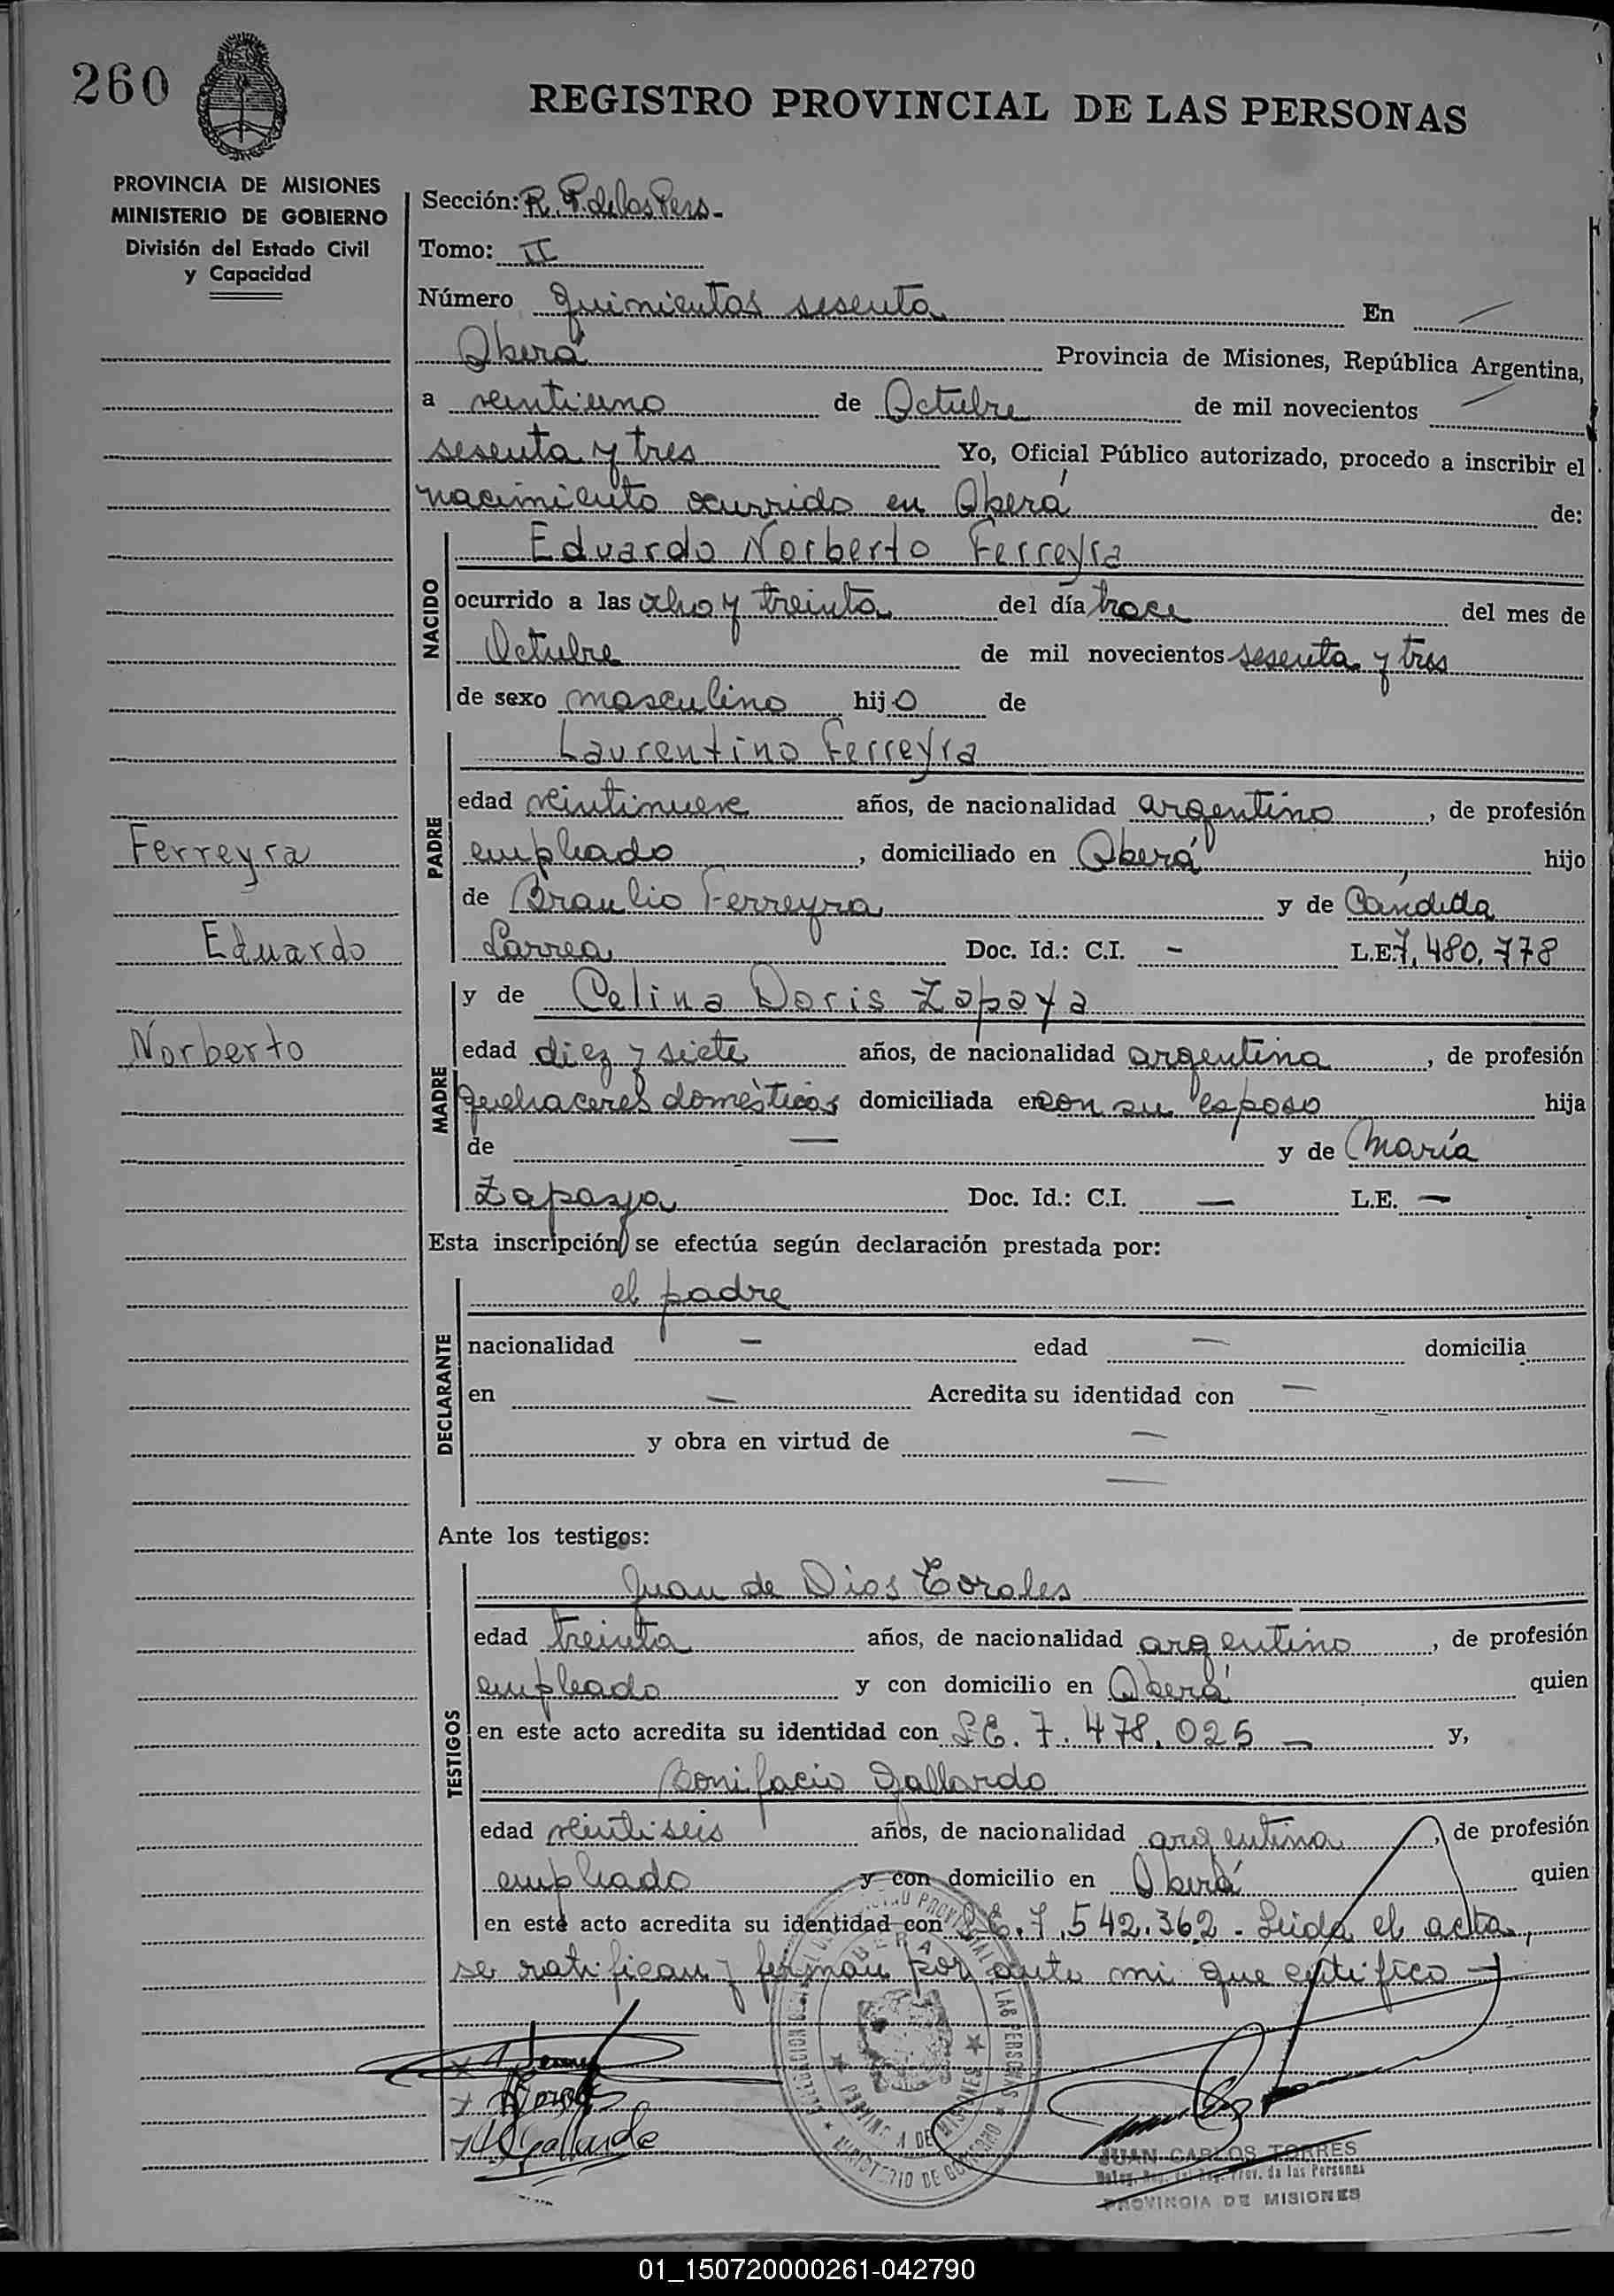 260
REGISTRO PROVINCIAL DE LAS PERSONAS
PROVINCIA DE MISIONES
MINISTERIO DE GOBIERNO
División del Estado Civil
y Capacidad
Sección: R. P. de las Pers.
Tomo: II
Número quinientos sesenta En
Oberá Provincia de Misiones, República Argentina,
a veintiuno de Octubre de mil novecientos
sesenta y tres Yo, Oficial Público autorizado, procedo a inscribir el
nacimiento ocurrido en Oberá de:
NACIDO
Eduardo Norberto Ferreyra
ocurrido a las ocho y treinta del día trece del mes de
Octubre de mil novecientos sesenta y tres
de sexo masculino hijo de
PADRE
Laurentino Ferreyra
edad veintinueve años, de nacionalidad argentino, de profesión
empleado, domiciliado en Oberá hijo
de Braulio Ferreyra y de Cándida
Larrea Doc. Id.: C.I. - L.E. 7.480.778
Ferreyra
Eduardo
Norberto
MADRE
y de Celina Doris Zapaya
edad diez y siete años, de nacionalidad argentina, de profesión
quehaceres domésticos domiciliada en con su esposo hija
de — y de María
Zapaya Doc. Id.: C.I. — L.E. —
Esta inscripción se efectúa según declaración prestada por:
DECLARANTE
el padre
nacionalidad — edad — domicilia
en — Acredita su identidad con —
y obra en virtud de —
—
Ante los testigos:
TESTIGOS
Juan de Dios Corales
edad treinta años, de nacionalidad argentino, de profesión
empleado y con domicilio en Oberá quien
en este acto acredita su identidad con L.E. 7.478.025 — y,
Bonifacio Gallardo
edad veintiseis años, de nacionalidad argentina, de profesión
empleado y con domicilio en Oberá quien
en este acto acredita su identidad con L.E. 7.542.362 - Leida el acta,
se ratifican y firman por ante mi que certifico —
Gallardo
MINISTERIO DE GOBIERNO
PROVINCIA DE MISIONES
JUAN CARLOS TORRES
Prov. de las Personas
PROVINCIA DE MISIONES
01_150720000261-042790